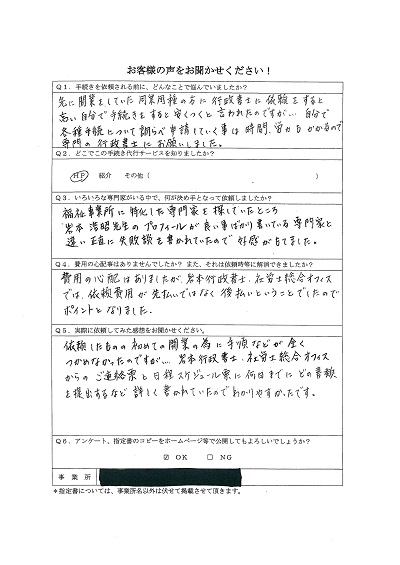 お客様の声をお聞かせください！
Q１．手続きを依頼される前に、どんなことで悩んでいましたか？
先に開業をしていた同業用種の方に行政書士に依頼をすると
高い自分で手続きをすると安くつくと言われたのですが… 自分で
各種手続について調らべ申請していく事は時間、労力もかかるので
専門の行政書士にお願いしました。
Q２．どこでこの手続き代行サービスを知りましたか？
HP 紹介 その他（ ）
Q３．いろいろな専門家がいる中で、何が決め手となって依頼しましたか？
福祉事業所に特化した専門家を探していたところ
岩本浩昭先生のプロフィールが良い事ばかり書いている専門家と
違い正直に失敗談を書かれていたので好感がもてました。
Q４．費用の心配事はありませんでしたか？また、それは依頼時等に解消できましたか？
費用の心配はありましたが、岩本行政書士、社労士総合オフィス
では、依頼費用が先払いではなく後払いということでしたので
ポイントとなりました。
Q５．実際に依頼してみた感想をお聞かせください。
依頼したものの初めての開業の為に手順などが全く
つかめなかったのですが… 岩本行政書士、社労士総合オフィス
からのご連絡票と日程スケジュール票に何日までにどの書類
を提出するなど詳しく書かれていたのでわかりやすかったです。
Q６．アンケート、指定書のコピーをホームページ等で公開してもよろしいでしょうか？
☑ ＯＫ □ ＮＧ
事業所
＊指定書については、事業所名以外は伏せて掲載させて頂きます。